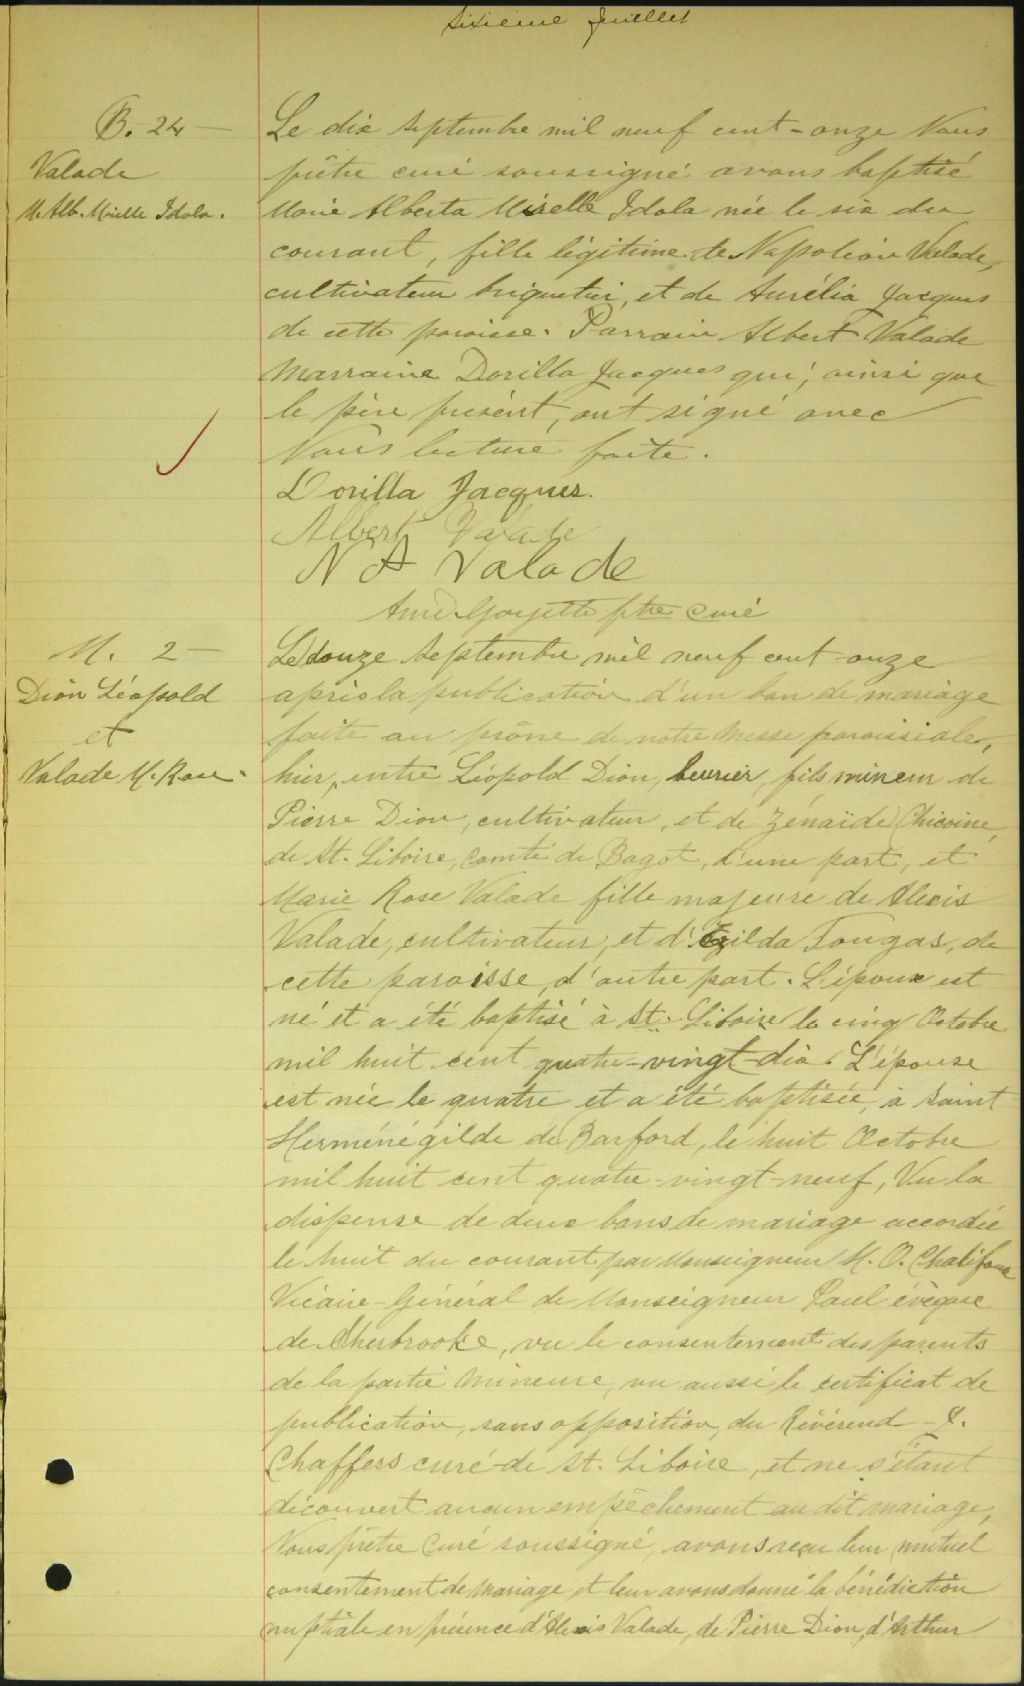 Sixième Juillet
B. 24 —
Valade
M. Alb. Mirelle Idola.
Le dix septembre mil neuf cent-onze Nous
prêtre curé soussigné avons baptisé
Marie Alberta Mirelle Idola née le six du
courant, fille légitime de Napoléon Valade,
cultivateur briquetier, et de Aurélia Jacques
de cette paroisse. Parrain Albert Valade
Marraine Dorilla Jacques qui, ainsi que
le père présent, ont signé avec
Nous lecture faite.
Dorilla Jacques.
Albert Valade
N A Valade
Goyette ptre curé
M. 2 —
Dion Léopold
et
Valade M. Rose.
Le douze septembre mil neuf cent onze
après la publication d'un ban de mariage
faite au prône de notre messe paroissiale,
hier, entre Léopold Dion, beurrier, fils mineur de
Pierre Dion, cultivateur, et de Zénaïde Chicoine,
de St. Liboire, comté de Bagot, d'une part, et
Marie Rose Valade fille majeure de Alexis
Valade, cultivateur, et d'Exilda Fougas, de
cette paroisse, d'autre part. L'époux est
né et a été baptisé à St. Liboire le cinq Octobre
mil huit cent quatre-vingt-dix. L'épouse
est née le quatre et a été baptisée, à Saint
Herménégilde de Barford, le huit Octobre
mil huit cent quatre-vingt-neuf, Vu la
dispense de deux bans de mariage accordée
le huit du courant par Monseigneur H. O. Chalifoux
Vicaire-Général de Monseigneur Paul évêque
de Sherbrooke, vu le consentement des parents
de la partie mineure, vu aussi le certificat de
publication, sans opposition, du Révérend
Chaffers curé de St. Liboire, et ne s'étant
découvert aucun empêchement au dit mariage,
Nous prêtre Curé soussigné, avons reçu leur mutuel
consentement de mariage et leur avons donné la bénédiction
nuptiale en présence d'Alexis Valade, de Pierre Dion, d'Arthur